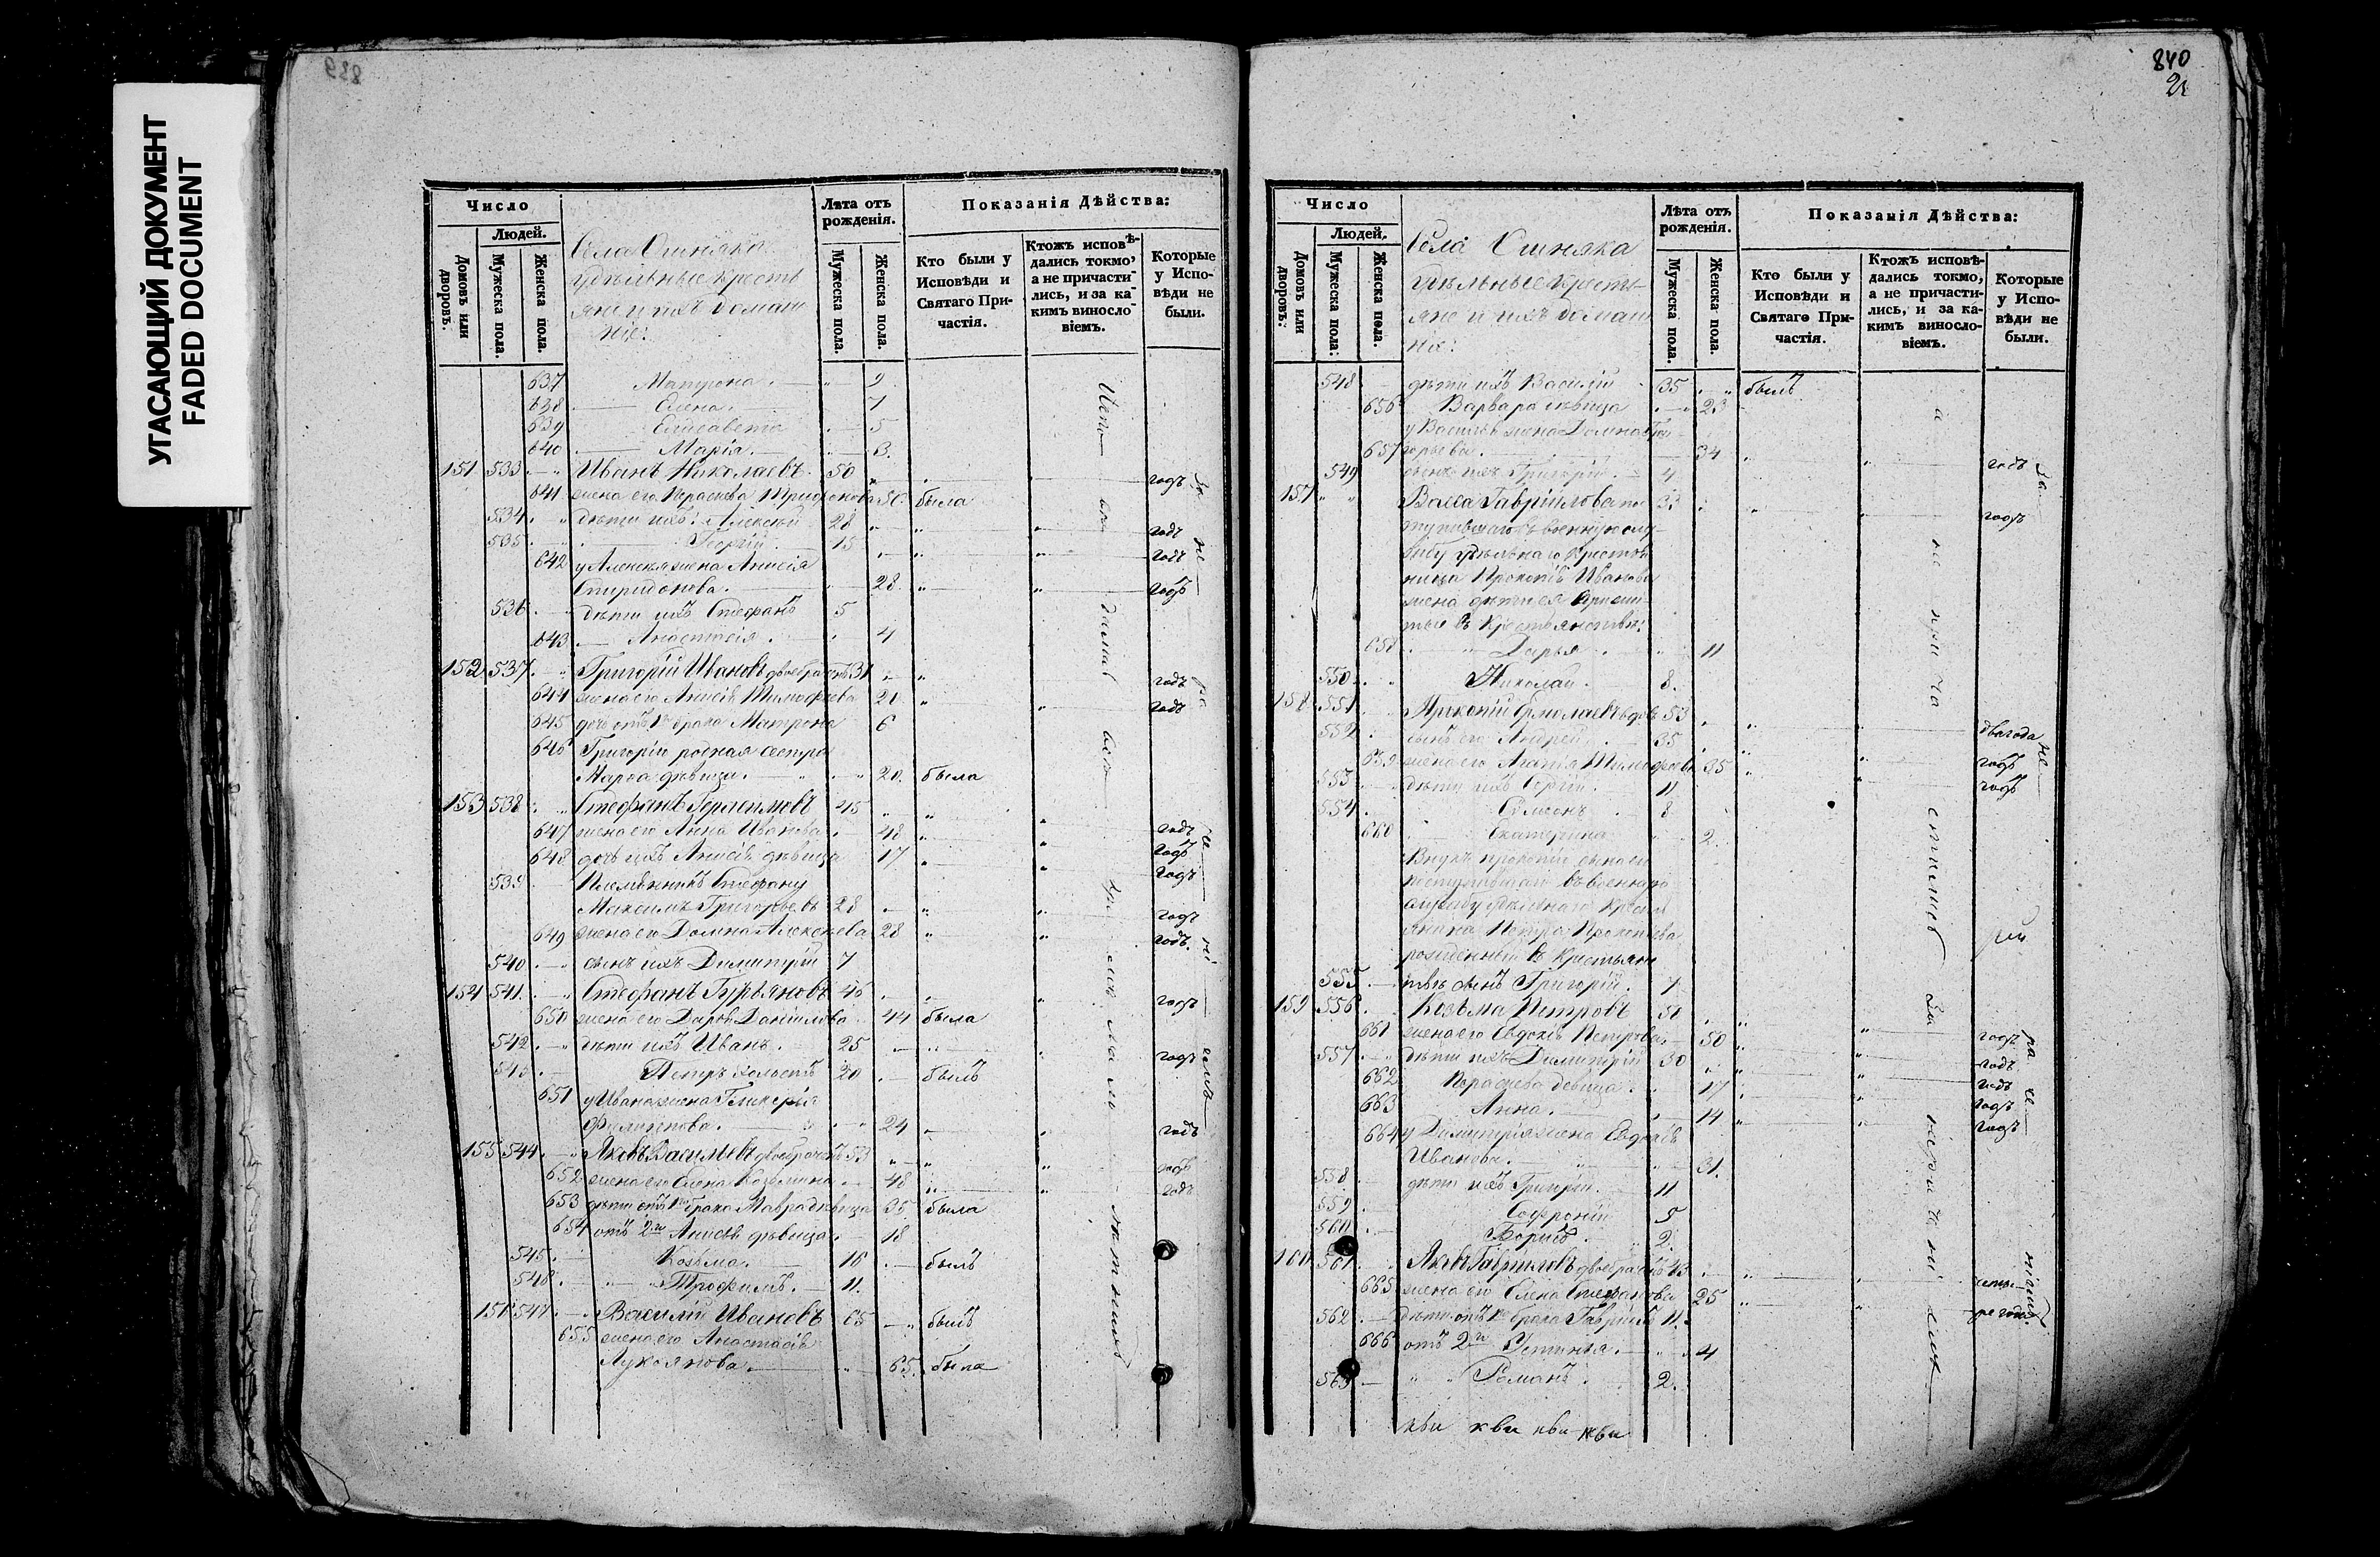 УГАСАЮЩИЙ ДОКУМЕНТ
FADED DOCUMENT
839
Число
Людей.
Домовъ или дворовъ.
Мужеска пола.
Женска пола.
Села Ошняка
удѣльные кресть
яне и ихъ домаш
ніе:
Лѣта отъ рожденія.
Мужеска пола.
Женска пола.
Показанія Дѣйства:
Кто были у Исповѣди и Святаго При-частія.
Ктожъ исповѣ-дались токмо, а не причасти-лись, и за ка-кимъ винослові­емъ.
Которые у Испо-вѣди не были.
637 Матрона. 9
638 Елена. 7
639 Елисавета 5
640 Марія. 3.
151 533 Иванъ Николаевъ. 50 годъ
641 жена его Параскева Трифонова 50. была
534 дѣти ихъ: Алексѣй 28 годъ
535 Георгій 15 годъ
642 у Алексѣя жена Анисія
Спиридонова. 28. годъ
536 дѣти ихъ Стефанъ 5
643 Анастасія. 4
152 537 Григорій Ивановъ двоебрачный 31 годъ
644 жена его Анисія Тимофеева 21 годъ
645 дочь отъ 1го брака Матрона 6
646 Григорію родная сестра
Марфа дѣвица. 20. была
153 538 Стефанъ Герасимовъ 45 годъ
647 жена его Анна Иванова 48 годъ
648 дочь ихъ Анисія дѣвица 17 годъ
539 Племянникъ Стефану
Максимъ Григорьевъ 28 годъ
649 жена его Домна Алексѣева 28 годъ.
540 сынъ ихъ Димитрій 7
154 541. Стефанъ Гурьяновъ 46 годъ
650 жена его Дарья Даніилова 44 была
542 дѣти ихъ Иванъ. 25 годъ
543 Петръ холостъ 20 былъ
651 у Ивана жена Гликерія
Филиппова. 24 годъ
155 544 Яковъ Васильевъ двоебрачный 53 годъ
652 жена его Елена Козьмина 48 годъ
653 дѣти отъ 1го брака Мавра дѣвица 35 была
654 отъ 2го Анисія дѣвица. 18
545 Козьма. 16 былъ
546 Трофимъ. 11.
156 547 Василій Ивановъ 65 былъ
655 жена его Анастасія
Лукоянова. 65. была
840
21
Число
Людей.
Домовъ или дворовъ:
Мужеска пола:
Женска пола.
Села Ошняка
удѣльные кресть-
яне и ихъ домаш
ніе:
Лѣта отъ рожденія.
Мужеска пола.
Женска пола.
Показанія Дѣйства:
Кто были у Исповѣди и Святаго При-частія.
Ктожъ исповѣ-дались токмо, а не причасти-лись, и за ка-кимъ винослo-віемъ.
Которые у Испо-вѣди не были.
548 дѣти ихъ Василій 35 былъ
656 Варвара дѣвица 23
у Василія жена Домна Гри
657 горьева. 34 годъ
549 сынъ ихъ Григорій 4
157 Васса Гаврилова по 33 годъ
ступившаго въ военную слу-
жбу удѣльнаго крестья
нина Прокопія Иванова
жена дѣти ея прижи
тые въ крестьянствѣ:
658 Дарья 11
550 Николай. 8.
158 551 Прокопій Ермолаевъ вдовъ 53 два года
552 сынъ его Андрей 35 годъ
659 жена его Агапія Тимофеева 35 годъ
553 дѣти ихъ Сергій 11
554 Симеонъ 8
660 Екатерина 2.
Внукъ Прокопію сына его
поступившаго въ военную
службу удѣльнаго кресть
янина Петра Прокопьева
рожденный въ крестьянс
555 твѣ сынъ Григорій. 7
159 556 Козьма Петровъ 50 годъ
661 жена его Евдокія Петрова. 50 годъ
557 дѣти ихъ Димитрій 30 годъ
662 Параскева девица. 17 годъ
663 Анна. 14 годъ
664 у Димитрія жена Евдокія
Иванова. 31.
558 дѣти ихъ Григорій. 11
559 Софроній 5
560 Борисъ. 2.
160 561 Яковъ Гавриловъ двоебрачный 43
665 жена его Елена Стефанова 25
562 дѣти отъ 1го брака Гавріилъ 11.
666 отъ 2го Устинья. 4
563 Романъ 2.
кви кви кви кви